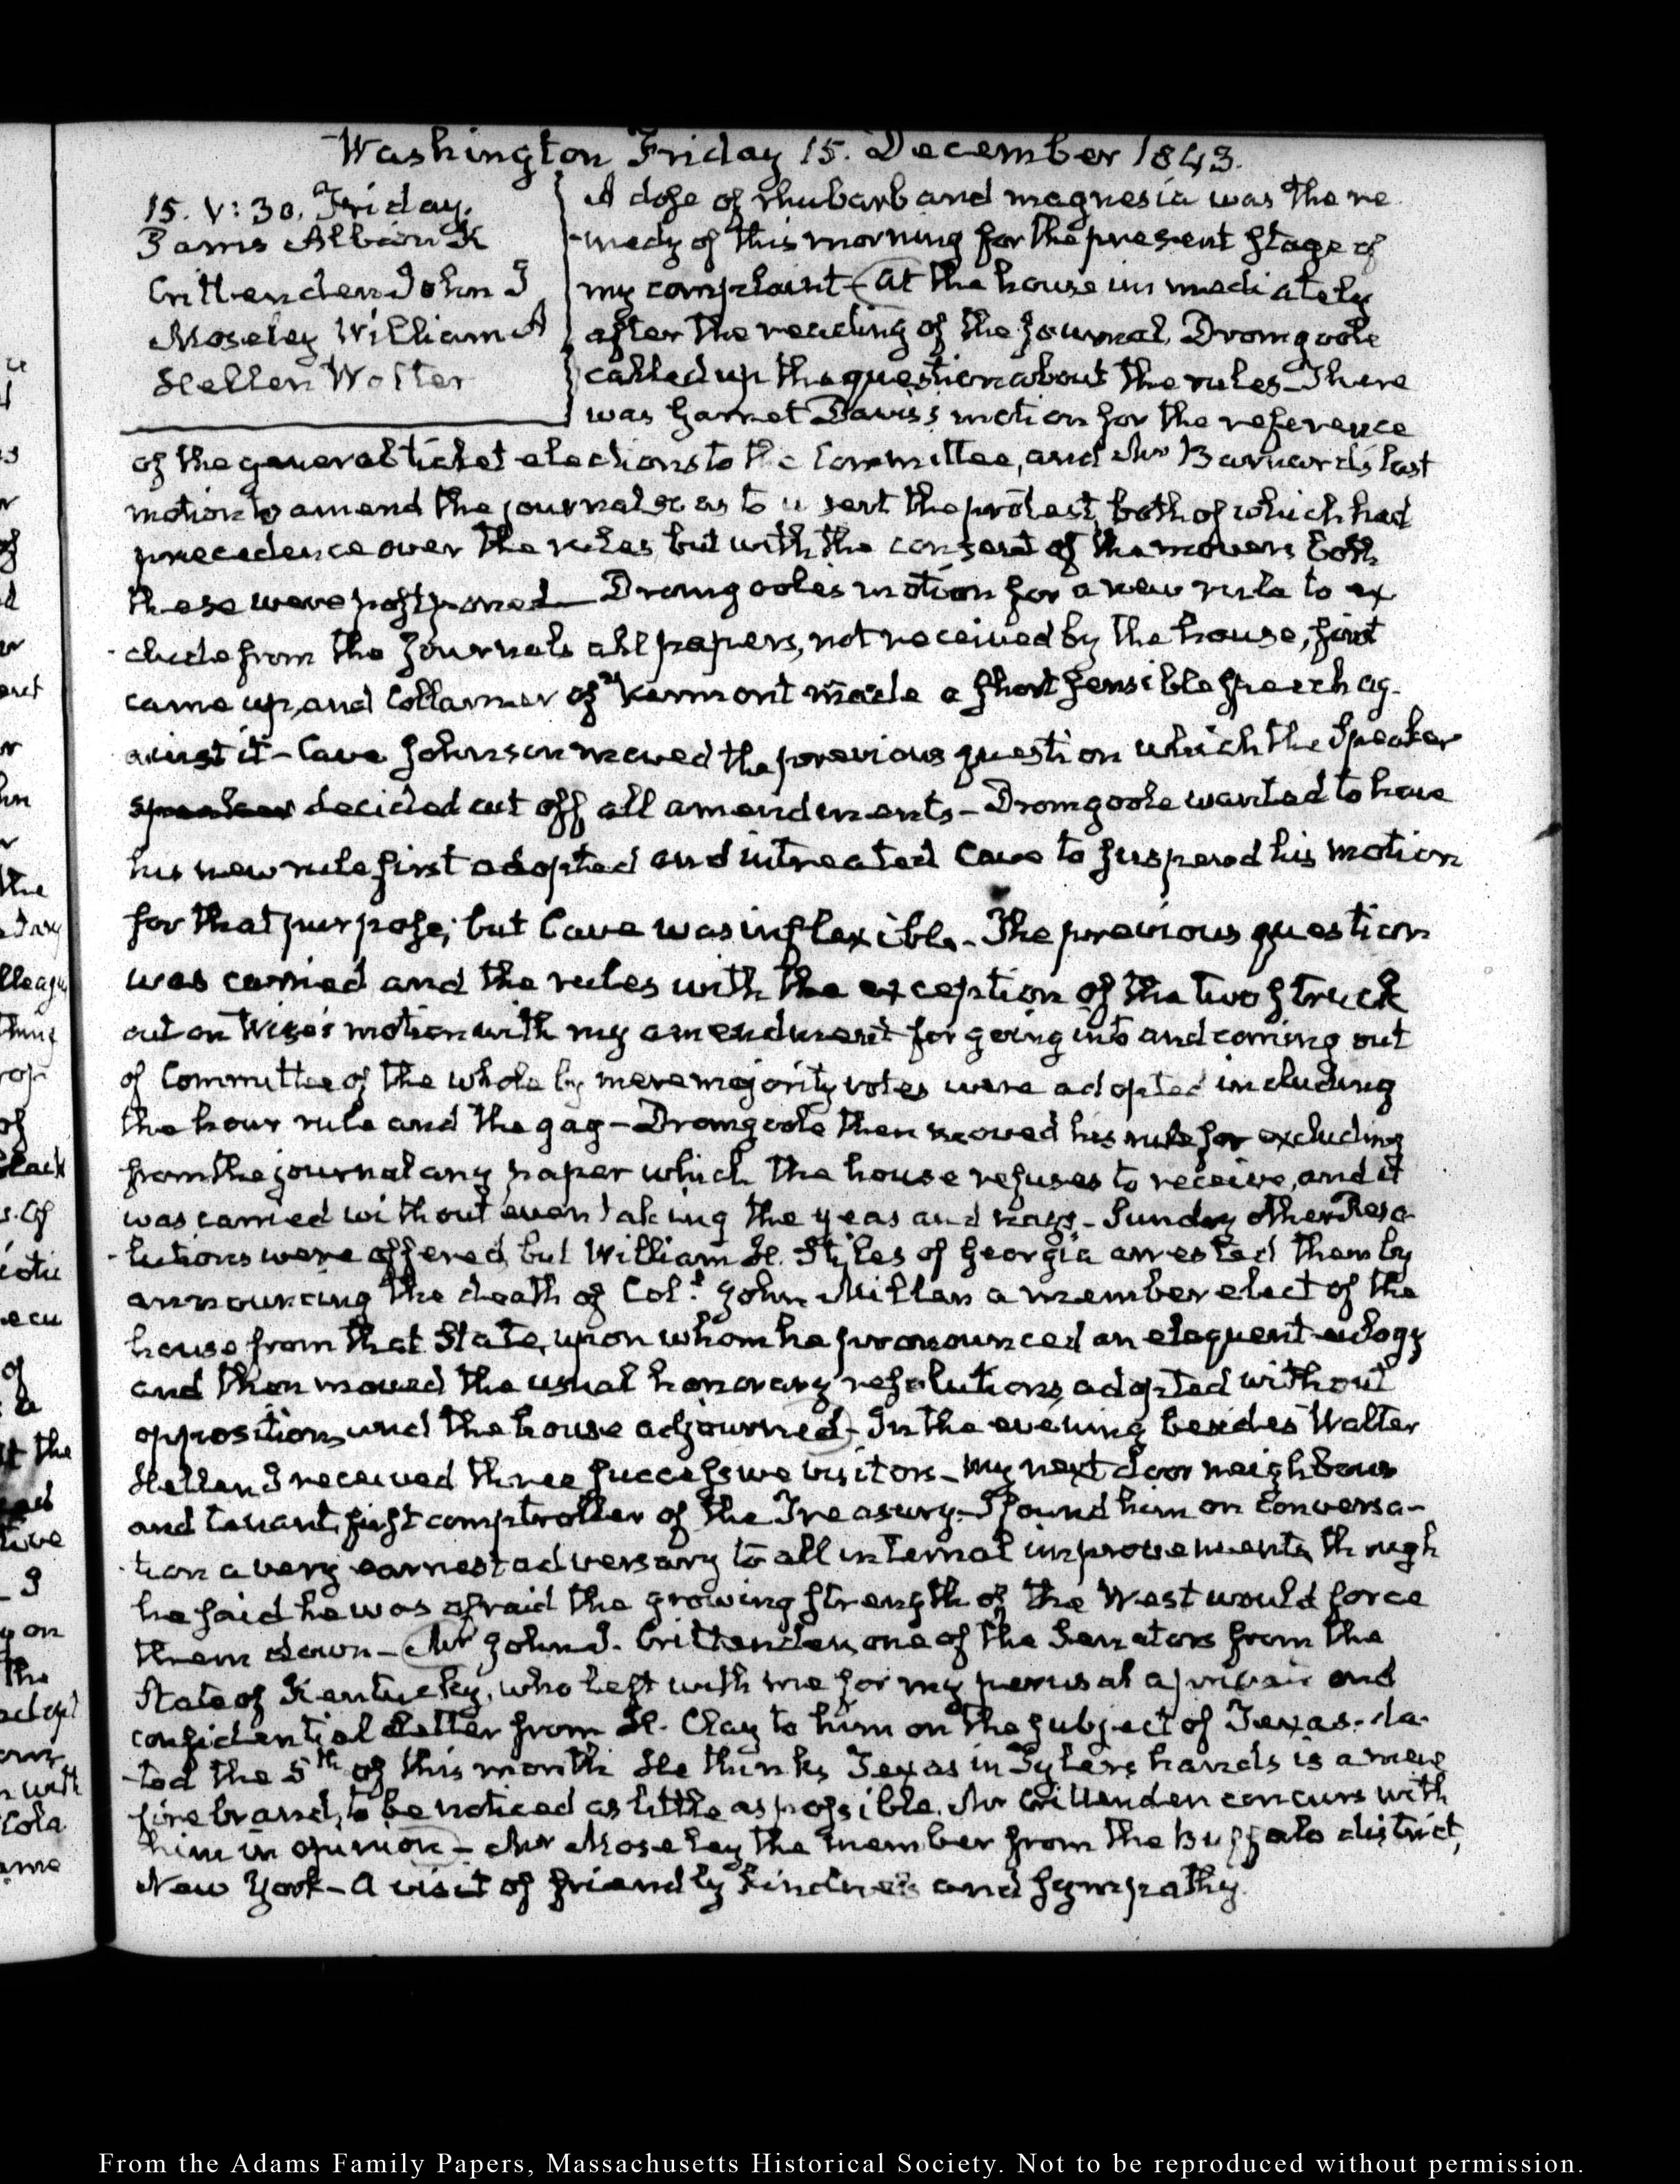 Washington Friday 15. December 1843.
15. V:30. Friday.
Parris Albion K
Crittenden John J
Moseley William A
Hellen Walter
A dose of rhubarb and magnesia was the re
-medy of this morning for the present stage of
my complaint - At the house immediately
after the reading of the journal, Dromgoole
called up the question about the rules - There
was Garret Davis's motion for the reference
of the general ticket elections to the Committee, and Mr Barnard's last
motion to amend the journal so as to insert the protest, both of which had
precedence over the rules, but with the consent of the movers both
these were postponed - Dromgoole's motion for a new rule to ex
-clude from the Journals all papers, not received by the house, first
came up, and Collamer of Vermont made a short sensible speech ag-
ainst it - Cave Johnson moved the previous question which the Speaker
speaker decided cut off all amendments - Dromgoole wanted to have
his new rule first adopted and intreated Cave to suspend his motion
for that purpose; but Cave was inflexible. The previous question
was carried and the rules with the exception of the two struck
out on Wise's motion with my amendment for going into and coming out
of Committee of the whole by mere majority votes were adopted including
the hour rule and the gag - Dromgoole then moved his rule for excluding
from the journal any paper which the house refuses to receive, and it
was carried without even taking the yeas and nays - Sundry other Reso-
-lutions were offered, but William H. Stiles of Georgia arrested them by
announcing the death of Col.l John Millen a member elect of the
house from that State, upon whom he pronounced an eloquent eulogy
and then moved the usual honorary resolutions, adopted without
opposition, and the house adjourned - In the evening besides Walter
Hellen I received three successive visitors - my next door neighbour
and tenant, first comptroller of the Treasury - I found him on conversa-
-tion a very earnest adversary to all internal improvements, though
he said he was afraid the growing strength of the West would force
them down - Mr John J. Crittenden, one of the Senators from the
State of Kentucky, who left with me for my perusal a private and
confidential letter from H. Clay to him on the subject of Texas - da-
-ted the 5th of this month. He thinks Texas in Tyler's hands is a mere
fire brand, to be noticed as little as possible. Mr Crittenden concurs with
him in opinion - Mr Moseley the member from the Buffalo district,
New York - A visit of friendly kindness and sympathy.
From the Adams Family Papers, Massachusetts Historical Society. Not to be reproduced without permission.